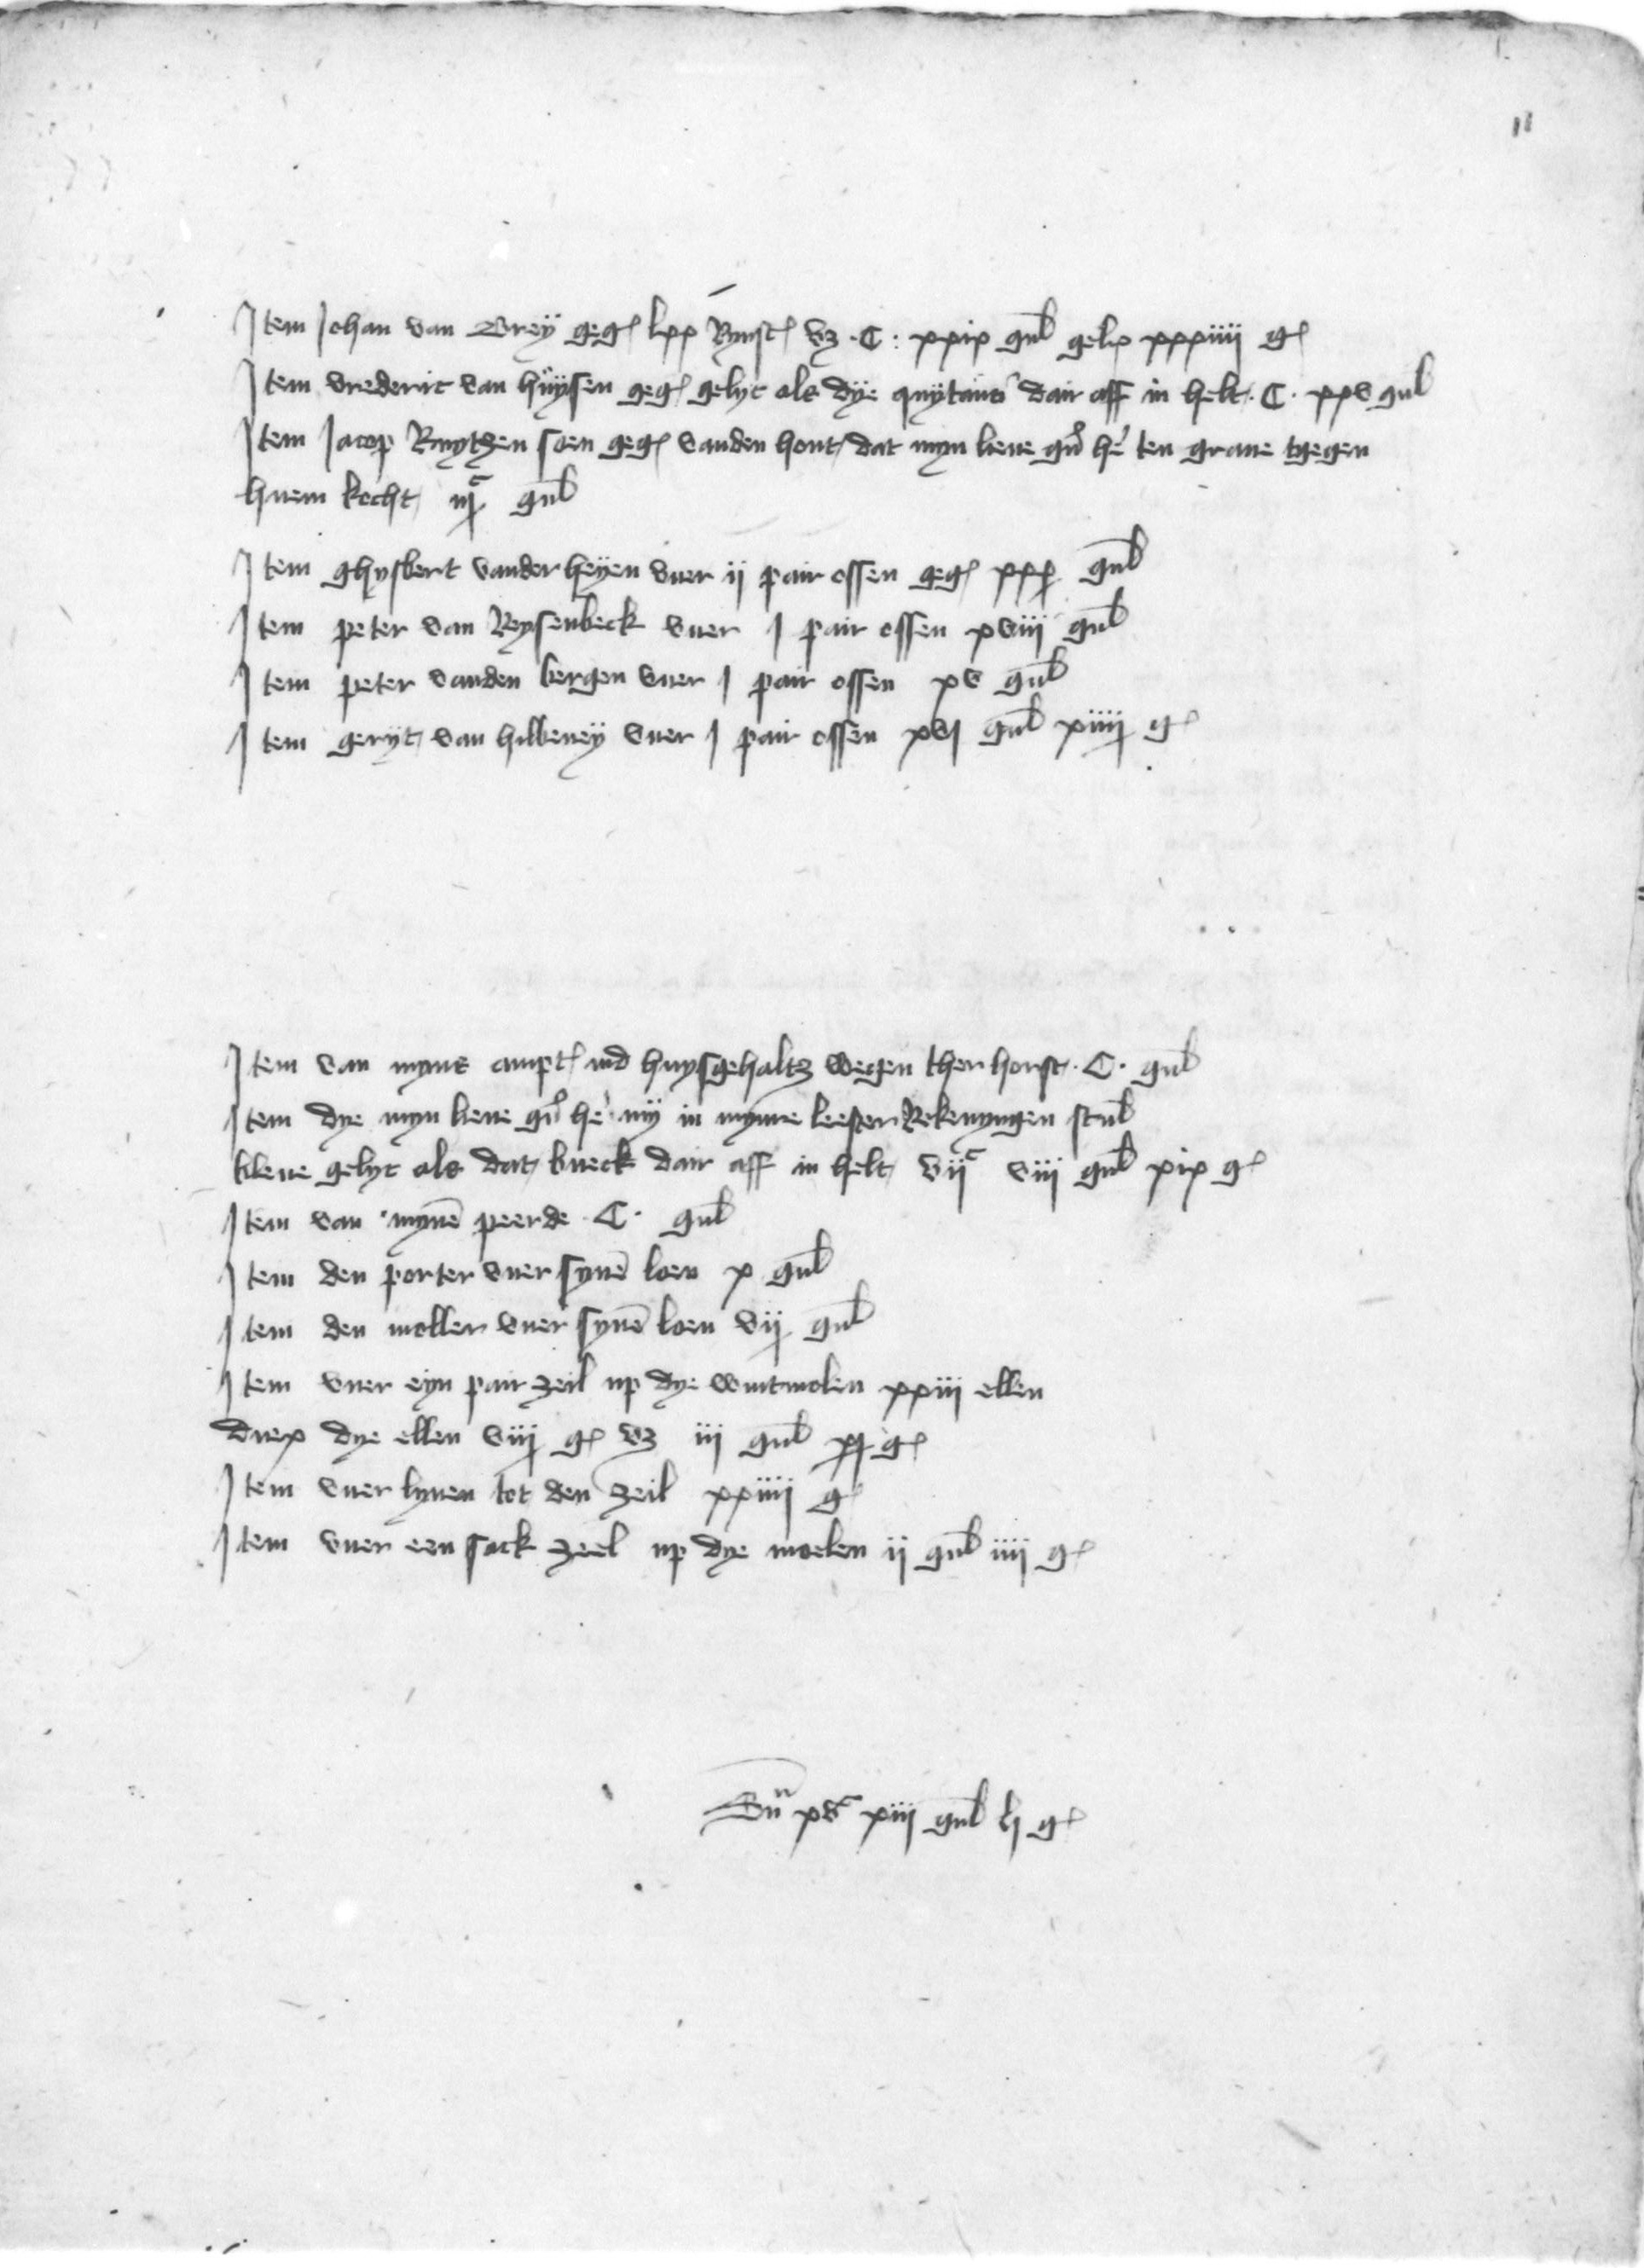 11
Item Johan van Drey geg lxx Rynsch vz · C · xxix gul gelix xxxiiii g
Item vrederic van huysen geg gelyc als dye quytancie dair aff in helt · C · xxv gul
Item Jacop Ruytzen soen geg vanden hont dat myn lieve gn he ten grave tgegen
huem kocht gul
Item ghysbert vander heyen vuer ii pair ossen geg gul
Item peter van Reysenbeck vuer j pair ossen xviii gul
Item peter vanden bergen vuer j pair ossen xv gul
Item geryt van hilbeney vuer j pair ossen xvj gul xiiij g
Item van myns ampt ind huysgehaltz wegen ther horst · C · gul
Item dye myn lieve gn he my in mynre leester Rekenyngen
bleve gelyc als dat bueck dair aff in helt viic viii gul xix g
Item van myne peerde · C · gul
Item den porter vuer syne loen x gul
Item den moller vuer syne loen vij gul
Item vuer eyn pair zeil up dye wintmolen xxiii ellen
dye ellen viij g vz iii gul g
Item vuer lynen tot den zeil xxiiii g
Item vuer een sack zeel up dye moelen ii gul iiii g
Su xvc xiii gul lj g